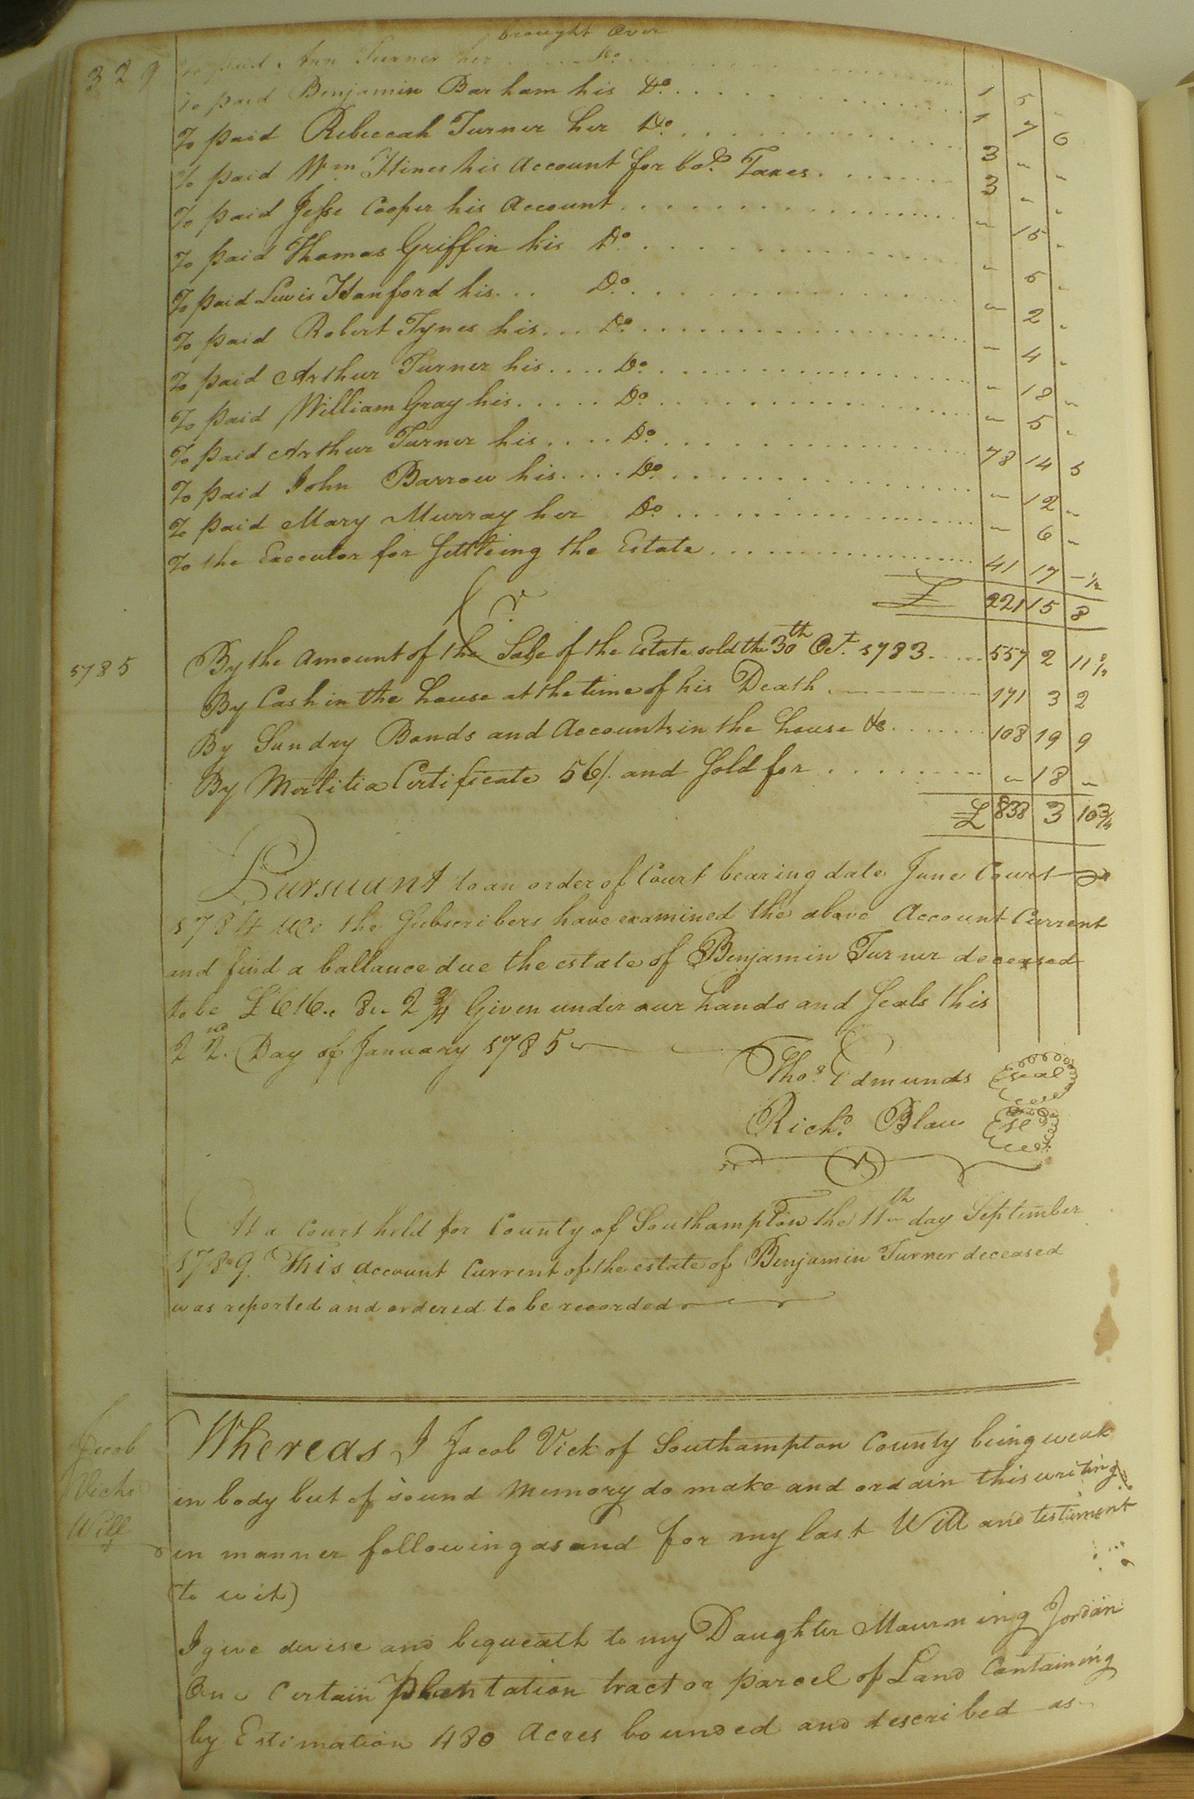 brought Over
329
To paid Ann Turner her Do. 1 5 -
To paid Benjamin Barham his Do. 1 7 6
To paid Rebeccah Turner her Do. 3 - -
To paid Wm. Hines his Account for Taxes 3 - -
To paid Jesse Cooper his Account - 15 -
To paid Thomas Griffin his Do. - 5 -
To paid Lewis Hanford his Do. - 2 -
To paid Robert Tynes his Do. - 4 -
To paid Arthur Turner his Do. - 18 -
To paid William Gray his Do. - 5 -
To paid Arthur Turner his Do. 78 14 5
To paid John Barrow his Do. - 12 -
To paid Mary Murray her Do. - 6 -
To the Executor for Settleing the Estate 41 17 - ½
£ 221 15 8
Cr.
1785 By the Amount of the Sale of the Estate sold the 30th Oct. 1783 557 2 11¾
By Cash in the house at the time of his Death 171 3 2
By Sunday Bonds and Accounts in the house &c 108 19 9
By Certificate 56/. and Sold for - 18 -
£ 838 3 10¾
Pursuant to an order of Court bearing date June Court
1784 we the Subscribers have examined the above Account Current
and find a ballance due the estate of Benjamin Turner deceased
to be £616.. 8.. 2¾ Given under our hands and Seals this
22nd. Day of January 1785
Thos. Edmunds Seal
Richd. Blow Seal
At a Court held for County of Southampton the 11th day September
1789. This account Current of the estate of Benjamin Turner deceased
was reported and ordered to be recorded
Jacob
Vicks
Will
Whereas I Jacob Vick of Southampton County being weak
in body but of sound Memory do make and ordain this writing
in manner following as and for my last Will and testiment
(to wit)
I give devise and bequeath to my Daughter Mourning Jordan
One Certain plantation tract or parcel of Land Containing
by Estimation 480 Acres bounded and described as